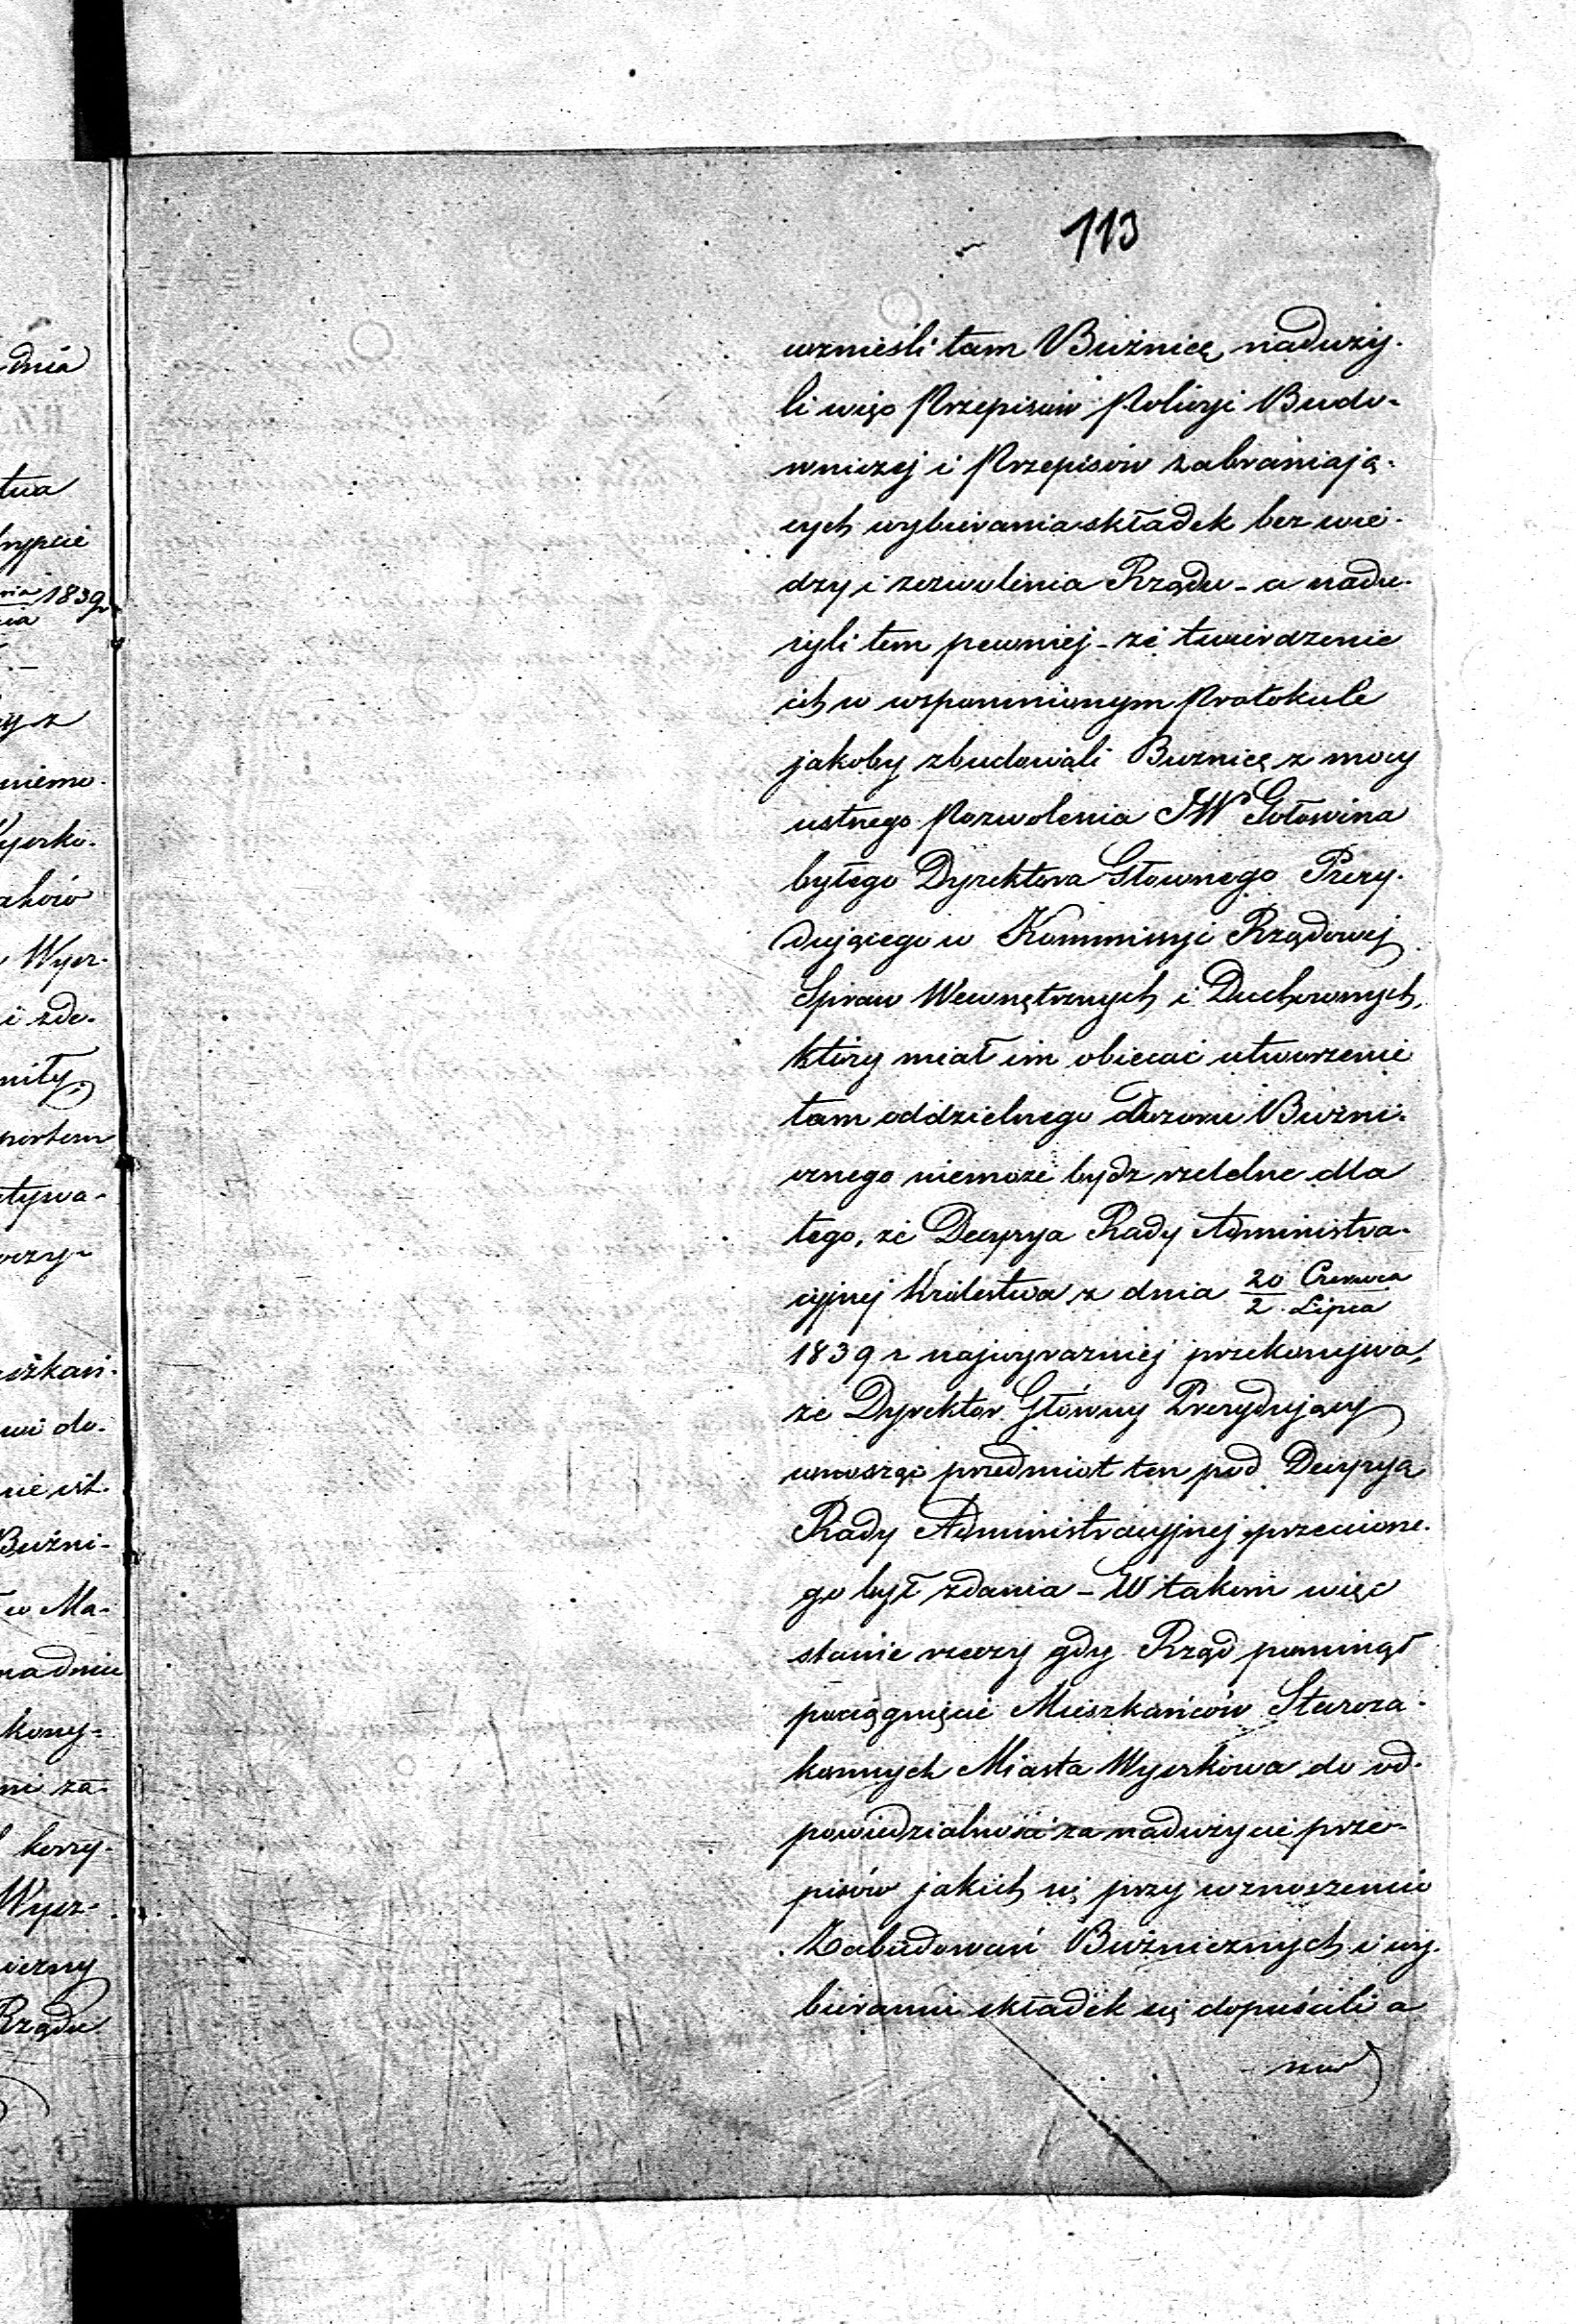 113
wznieśli tam Bużnicę, naduży-
li więc Przepisów Policyi Budo-
wniczej i Przepisów zabraniają-
cych wybierania składek bez wie-
dzy i zezwolenia Rządu - a nadu-
żyli tem pewniej - że twierdzenie
ich w wspomnionym Protokule
jakoby zbudowali Bużnicę z mocy
ustnego Pozwolenia JW Gołowina
byłego Dyrektora Głownego Prezy-
dującego w Kommissyi Rządowej
Spraw Wewnętrznych i Duchownych,
który miał im obiecać utworzenie
tam oddzielnego Dozoru Bużni-
cznego niemoże bydz rzetelne dla
tego, że Decyzya Rady Administra-
cyjnej Królestwa z dnia 20 Czerwca / 2 Lipca
1839 r najwyrazniej przekonywa,
że Dyrektor Główny Prezydujący
wnosząc przedmiot ten pod Decyzyą
Rady Administracyjnej, przeciwne-
go był zdania - W takim więc
stanie rzeczy gdy Rząd pominął
pociągnięcie Mieszkańców Staroza-
konnych Miasta Wyszkowa do od-
powiedzialności za nadużycie prze-
pisów jakich się przy wznoszeniu
Zabudowań Bużnicznych i wy-
bieraniu składek się dopuścili a
dnia
1839
Wysz-
i zdo-
Bużni-
w Ma-
Wysz-
Rządu